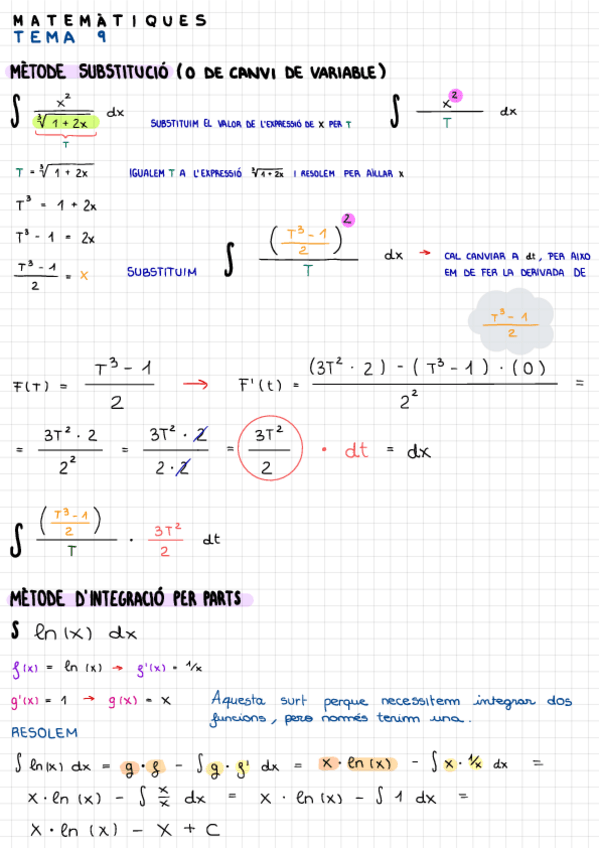 MATEMÀTIQUES
TEMA 9
MÈTODE SUBSTITUCIÓ (O DE CANVI DE VARIABLE)
∫ x² / ∛(1 + 2x) dx
T
SUBSTITUIM EL VALOR DE L'EXPRESSIÓ DE X PER T
∫ x² / T dx
T = ∛(1 + 2x) IGUALEM T A L'EXPRESSIÓ ∛(1+2x) I RESOLEM PER AÏLLAR X
T³ = 1 + 2x
T³ - 1 = 2x
(T³ - 1) / 2 = X SUBSTITUIM ∫ ((T³ - 1) / 2)² / T dx → CAL CANVIAR A dt, PER AIXO
EM DE FER LA DERIVADA DE
(T³ - 1) / 2
F(T) = (T³ - 1) / 2 → F'(t) = ((3T² · 2) - (T³ - 1) · (0)) / 2² =
= (3T² · 2) / 2² = (3T² · 2) / (2 · 2) = 3T² / 2 · dt = dx
∫ ((T³ - 1) / 2) / T · 3T² / 2 dt
MÈTODE D'INTEGRACIÓ PER PARTS
∫ ln(x) dx
f(x) = ln(x) → f'(x) = 1/x
g'(x) = 1 → g(x) = X Aquesta surt perque necessitem integrar dos
funcions, pero només tenim una.
RESOLEM
∫ ln(x) dx = g · f - ∫ g · f' dx = x · ln(x) - ∫ x · 1/x dx =
x · ln(x) - ∫ x/x dx = x · ln(x) - ∫ 1 dx =
x · ln(x) - x + C